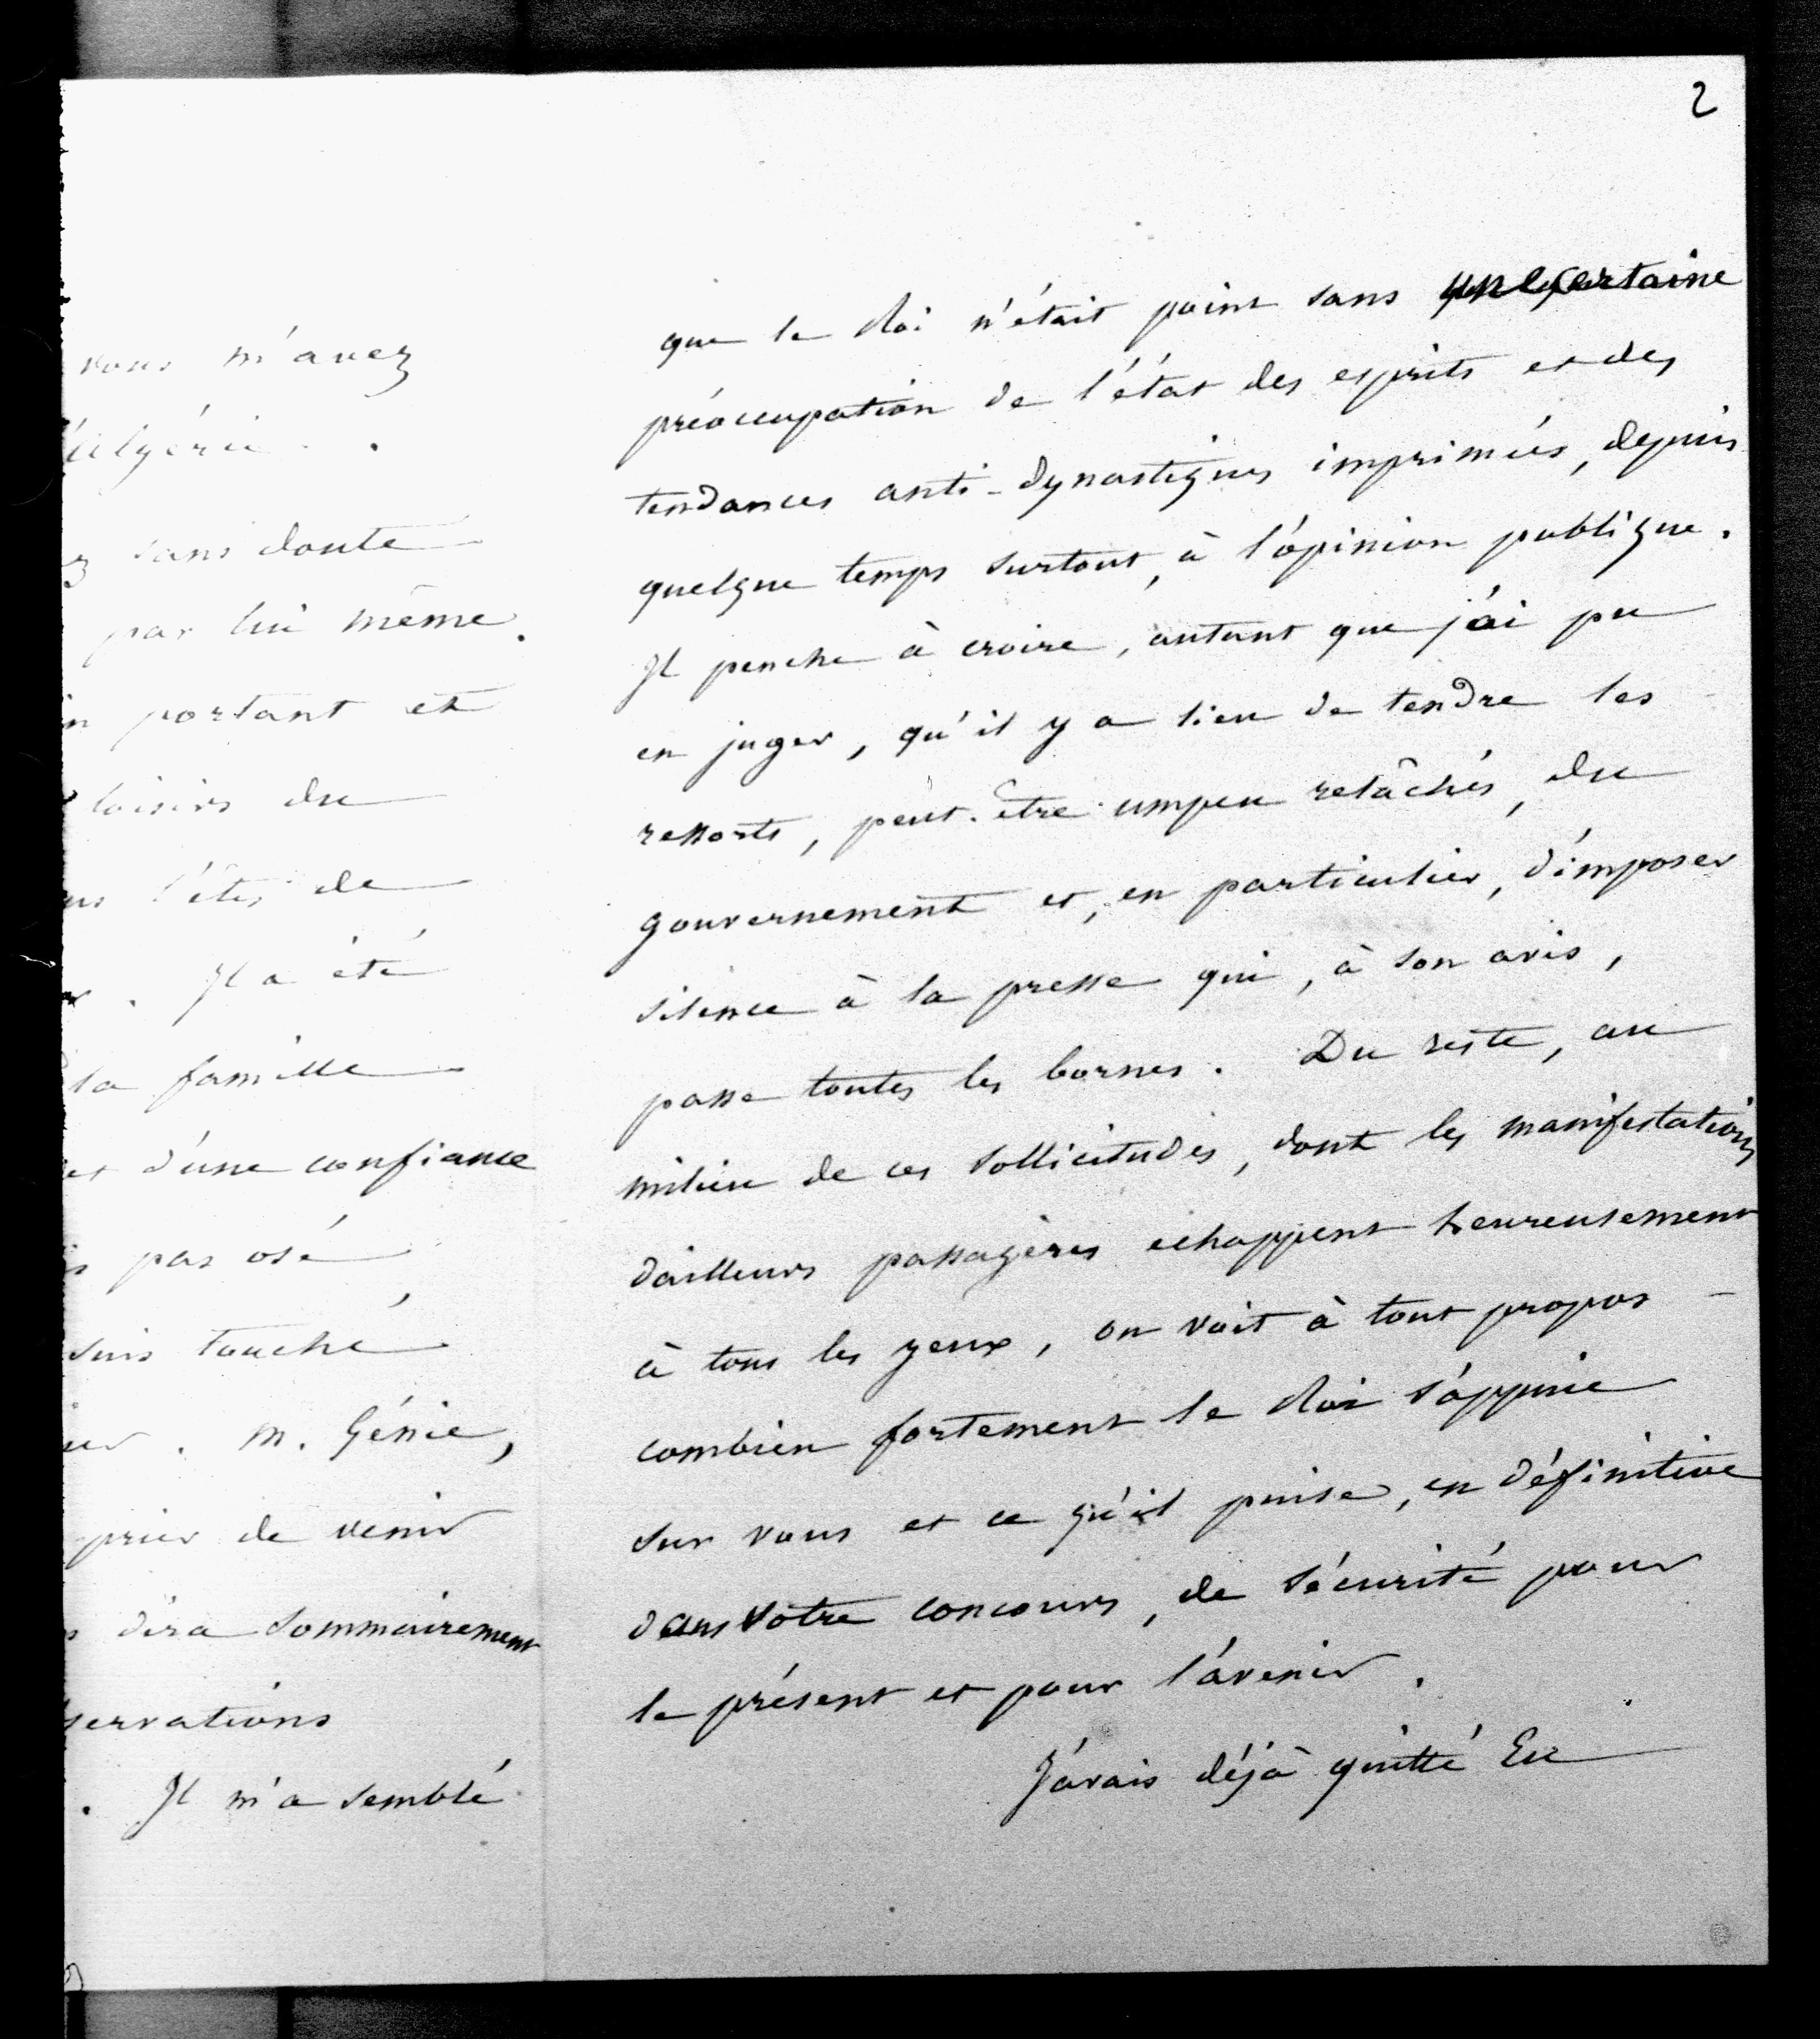 vous m'avez
l'Algérie .
z sans doute
par lui même.
n portant et
loisirs du
us l'êtes de
. Il a été
la famille
et d'une confiance
s pas osé,
suis touché
. M. Génie,
prier de venir
s dira sommairement
servations
. Il m'a semblé
2
que le Roi n'était point sans une certaine
préoccupation de l'état des esprits et des
tendances anti-dynastiques imprimées, depuis
quelque temps surtout, à l'opinion publique.
Il penche à croire, autant que j'ai pu
en juger, qu'il y a lieu de tendre les
ressorts, peut-être un peu relâchés, du
gouvernement et, en particulier, d'imposer
silence à la presse qui, à son avis,
passe toutes les bornes. Du reste, au
milieu de ces sollicitudes, dont les manifestations
d'ailleurs passagères echappent heureusement
à tous les yeux, on voit à tout propos
combien fortement le Roi s'appuie
sur vous et ce qu'il puise, en définitive
dans votre concours, de sécurité pour
le présent et pour l'avenir.
J'avais déjà quitté Eu